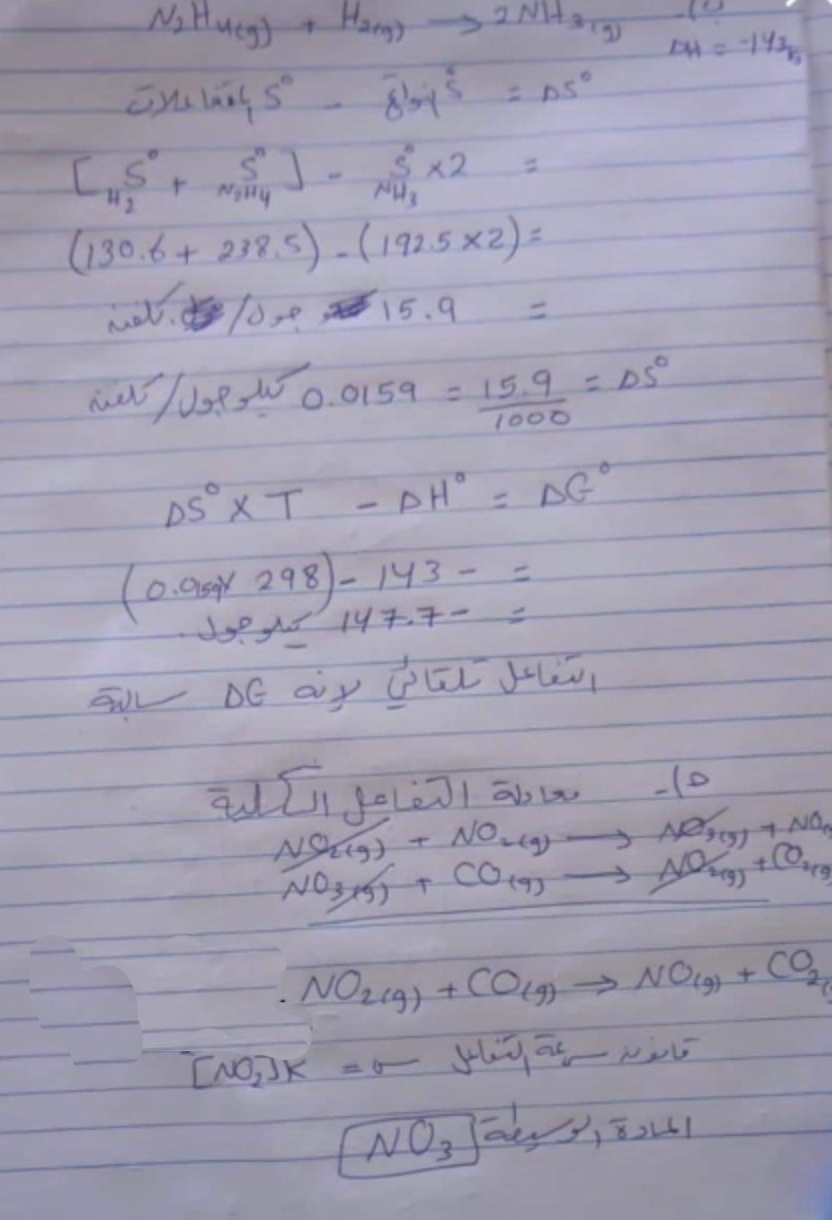 N2H4(g) + H2(g) → 2NH3(g)
DH = -143
DS° = S° نواتج - S° متفاعلات
= 2× S° NH3 - [S° N2H4 + S° H2]
=(2×192.5) - (238.5 + 130.6)
= 15.9 جول/كلفن
DS° = 15.9/1000 = 0.0159 كيلو جول/كلفن
DG° = DH° - T × DS°
= - 143 - (298 × 0.0159)
= -147.7 كيلو جول.
التفاعل تلقائي لإنه DG سالبة
٥)- معادلة التفاعل الكلية
NO2(g) + NO2(g) → NO3(g) + NO(g
NO3(g) + CO(g) → NO2(g) + CO2(g
NO2(g) + CO(g) → NO(g) + CO2(
قانون سرعة التفاعل س = K[NO2]
المادة الوسيطة NO3